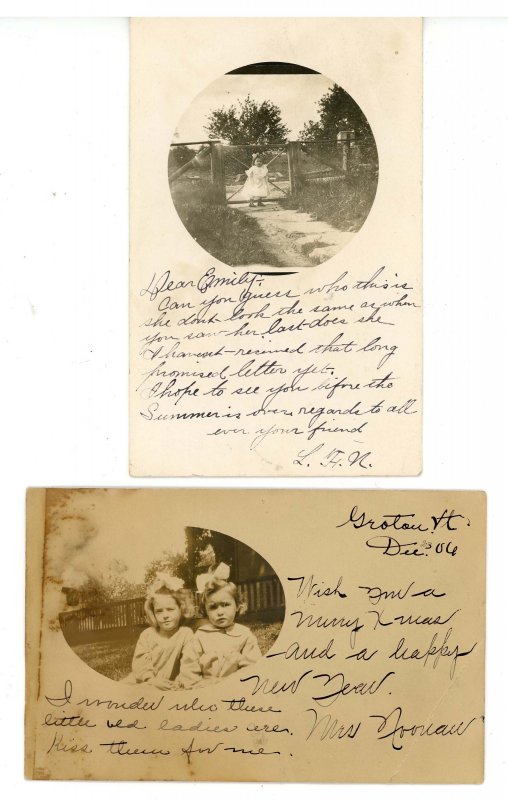 Dear Emily:-
Can you guess who this is
she dont look the same as when
you saw her last does she
I havent received that long
promised letter yet.
I hope to see you before the
Summer is over. regards to all
ever your friend
L. F. N.
Groton Vt.
Dec. 06
Wish you a
Merry Xmas
and a happy
New Year.
Mrs Noonan
I wonder who these
little old ladies are.
Kiss them for me.